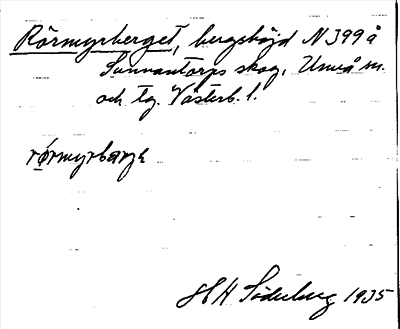 Rörmyrberget, bergshöjd N 399 å
Sunnantorps skog, Umeå m.
och tg. Västerb. l.
rørmyrbærje
HH Söderberg 1935